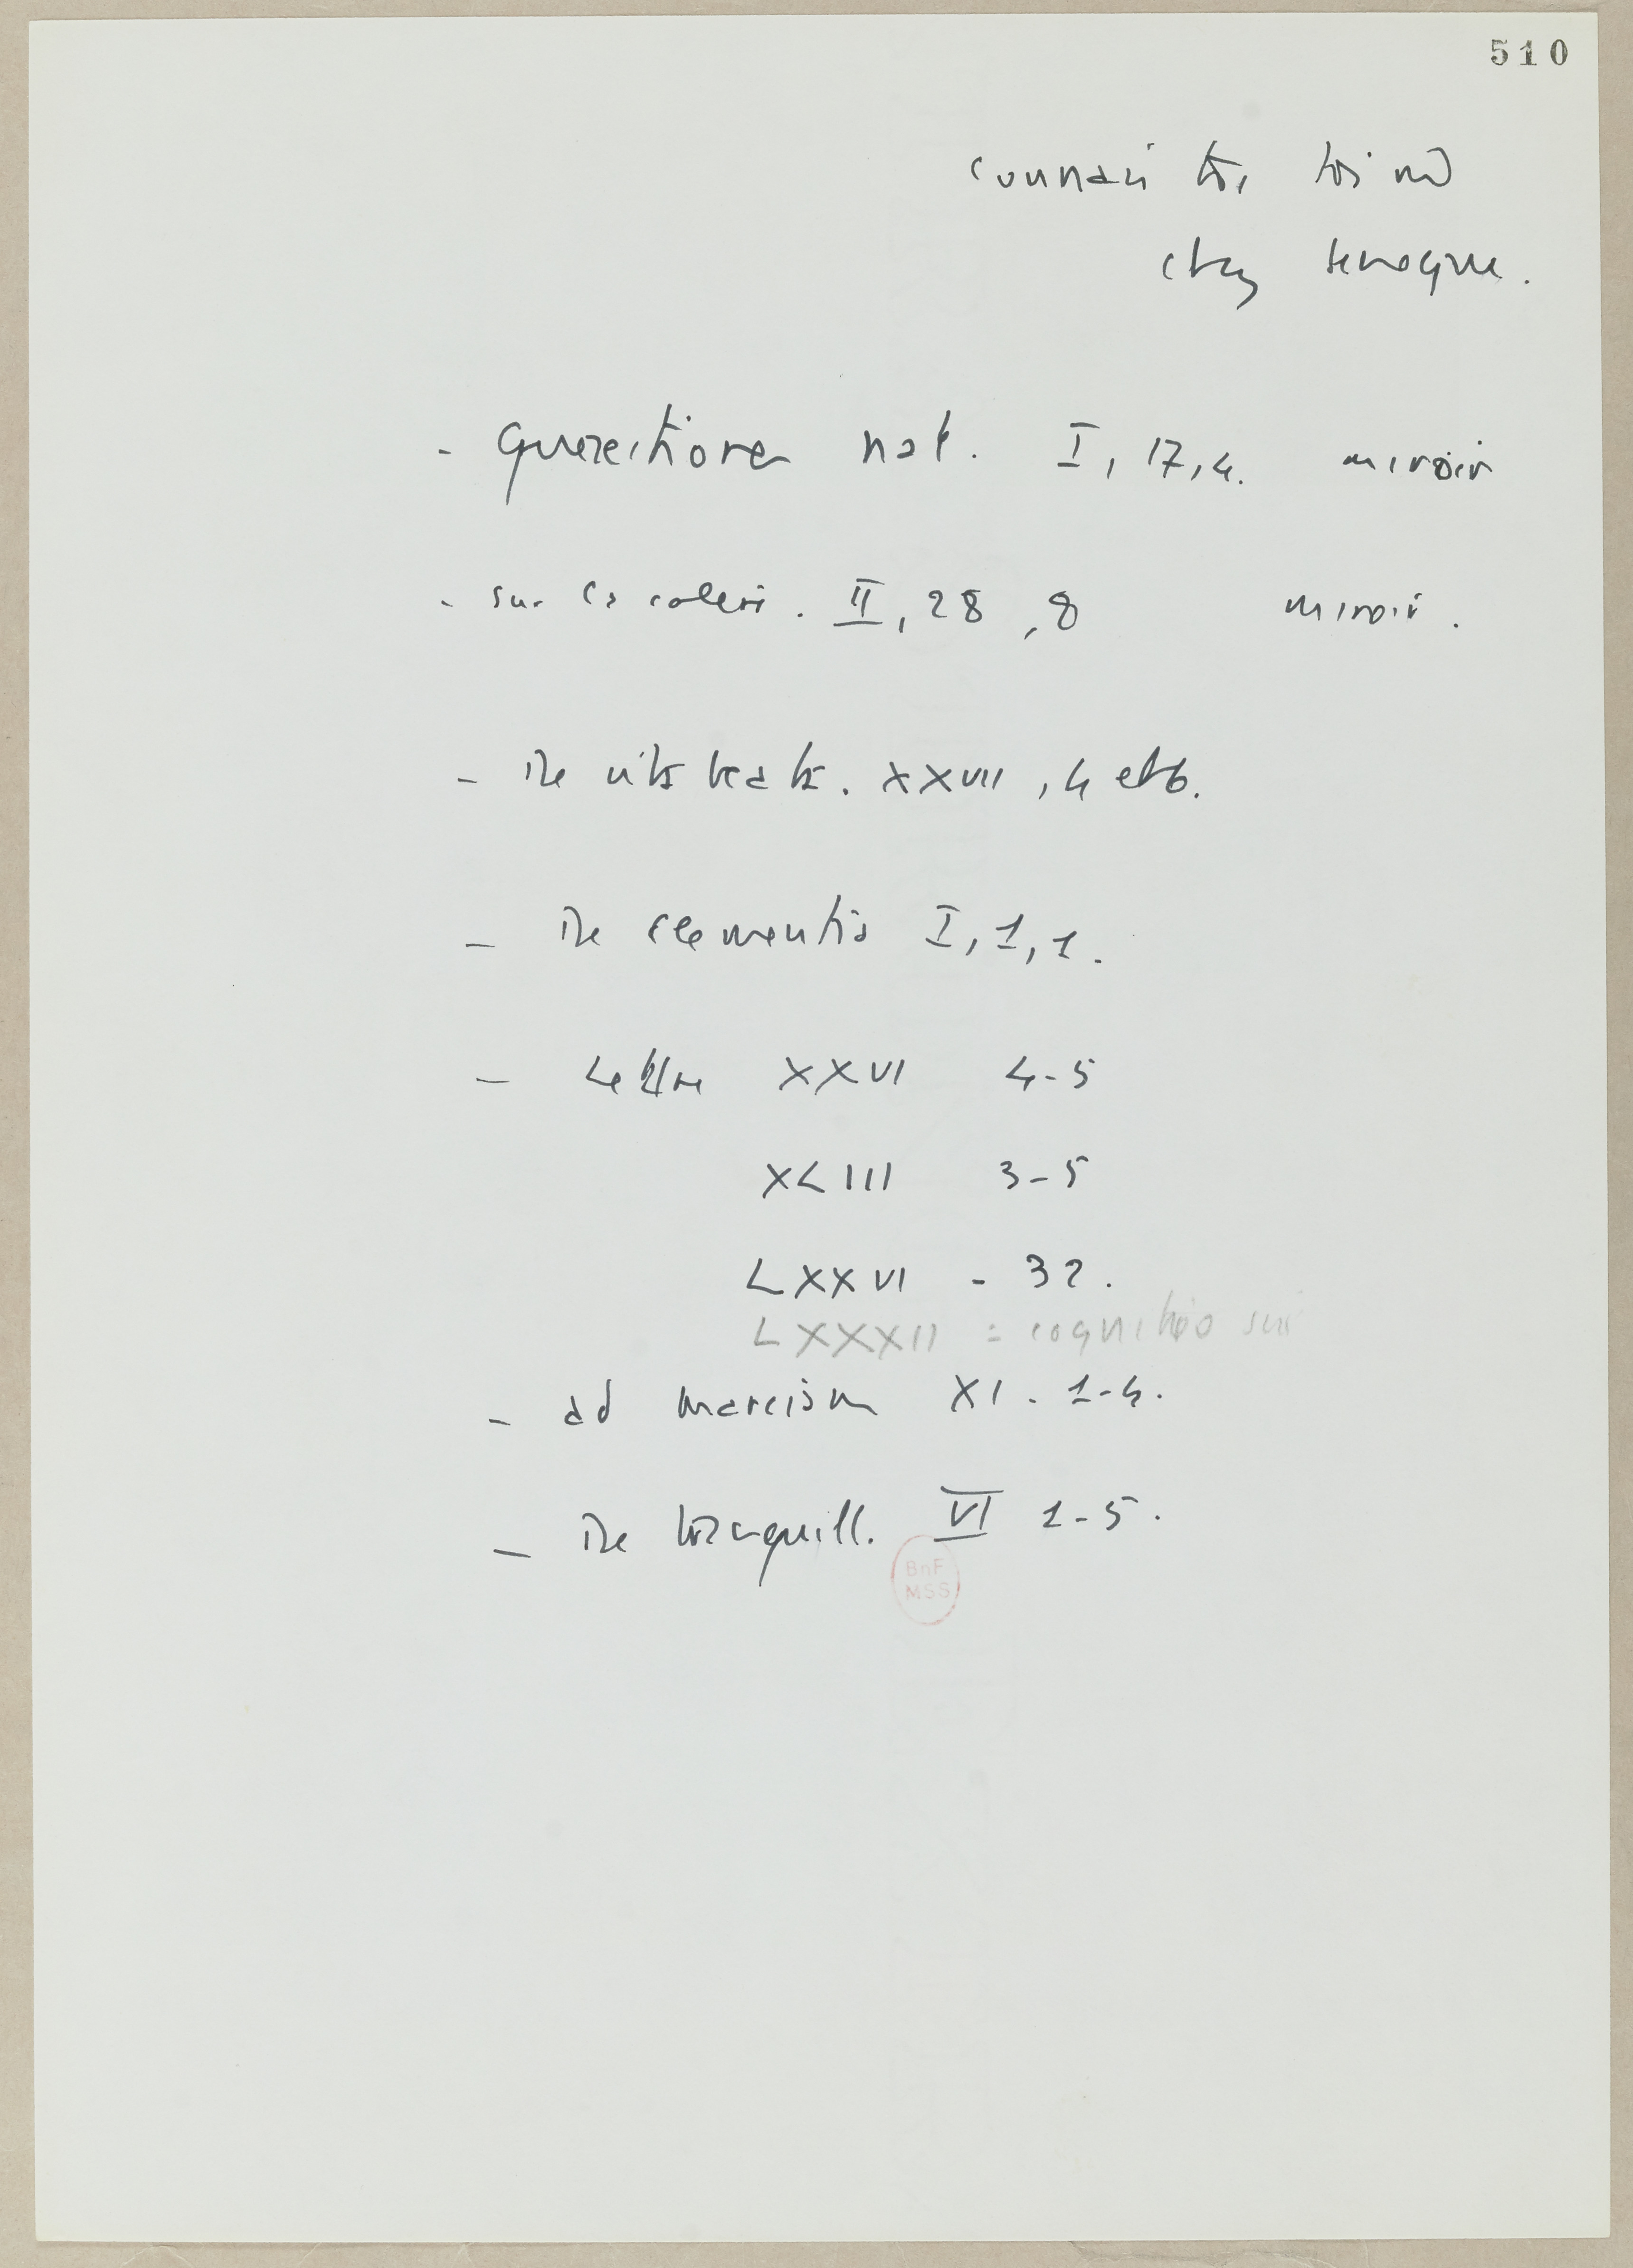 510
connais toi toi m̂
chez seneque.
- Quaestiones nat. I, 17, 4. miroir
- sur la colere. II, 28, 8 miroir.
- De vita beata. XXVII, 4 et 6.
- De clementia I, 1, 1.
- Lettre XXVI 4-5
XLIII 3-5
LXXVI - 32.
LXXXII = cognitio sui
- ad marciam XI. 1-4.
- De tranquill. VI 1-5.
BnF
MSS